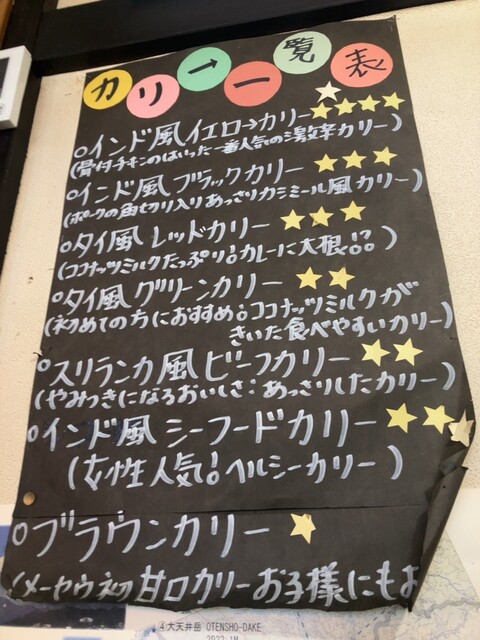 カリー一覧表
○インド風イエローカリー
(骨付チキンのはいった一番人気の激辛カリー)
○インド風ブラックカリー
(ポークの角切り入りあっさりカシミール風カリー)
○タイ風レッドカリー
(ココナッツミルクたっぷり!カレーに大根!?)
○タイ風グリーンカリー
(初めての方におすすめ!ココナッツミルクが
きいた食べやすいカリー)
○スリランカ風ビーフカリー
(やみつきになるおいしさ!あっさりしたカリー)
○インド風シーフードカリー
(女性人気!ヘルシーカリー)
○ブラウンカリー
(メーサウ初甘口カリーお子様にもお
④大天井岳 OTENSHO-DAKE